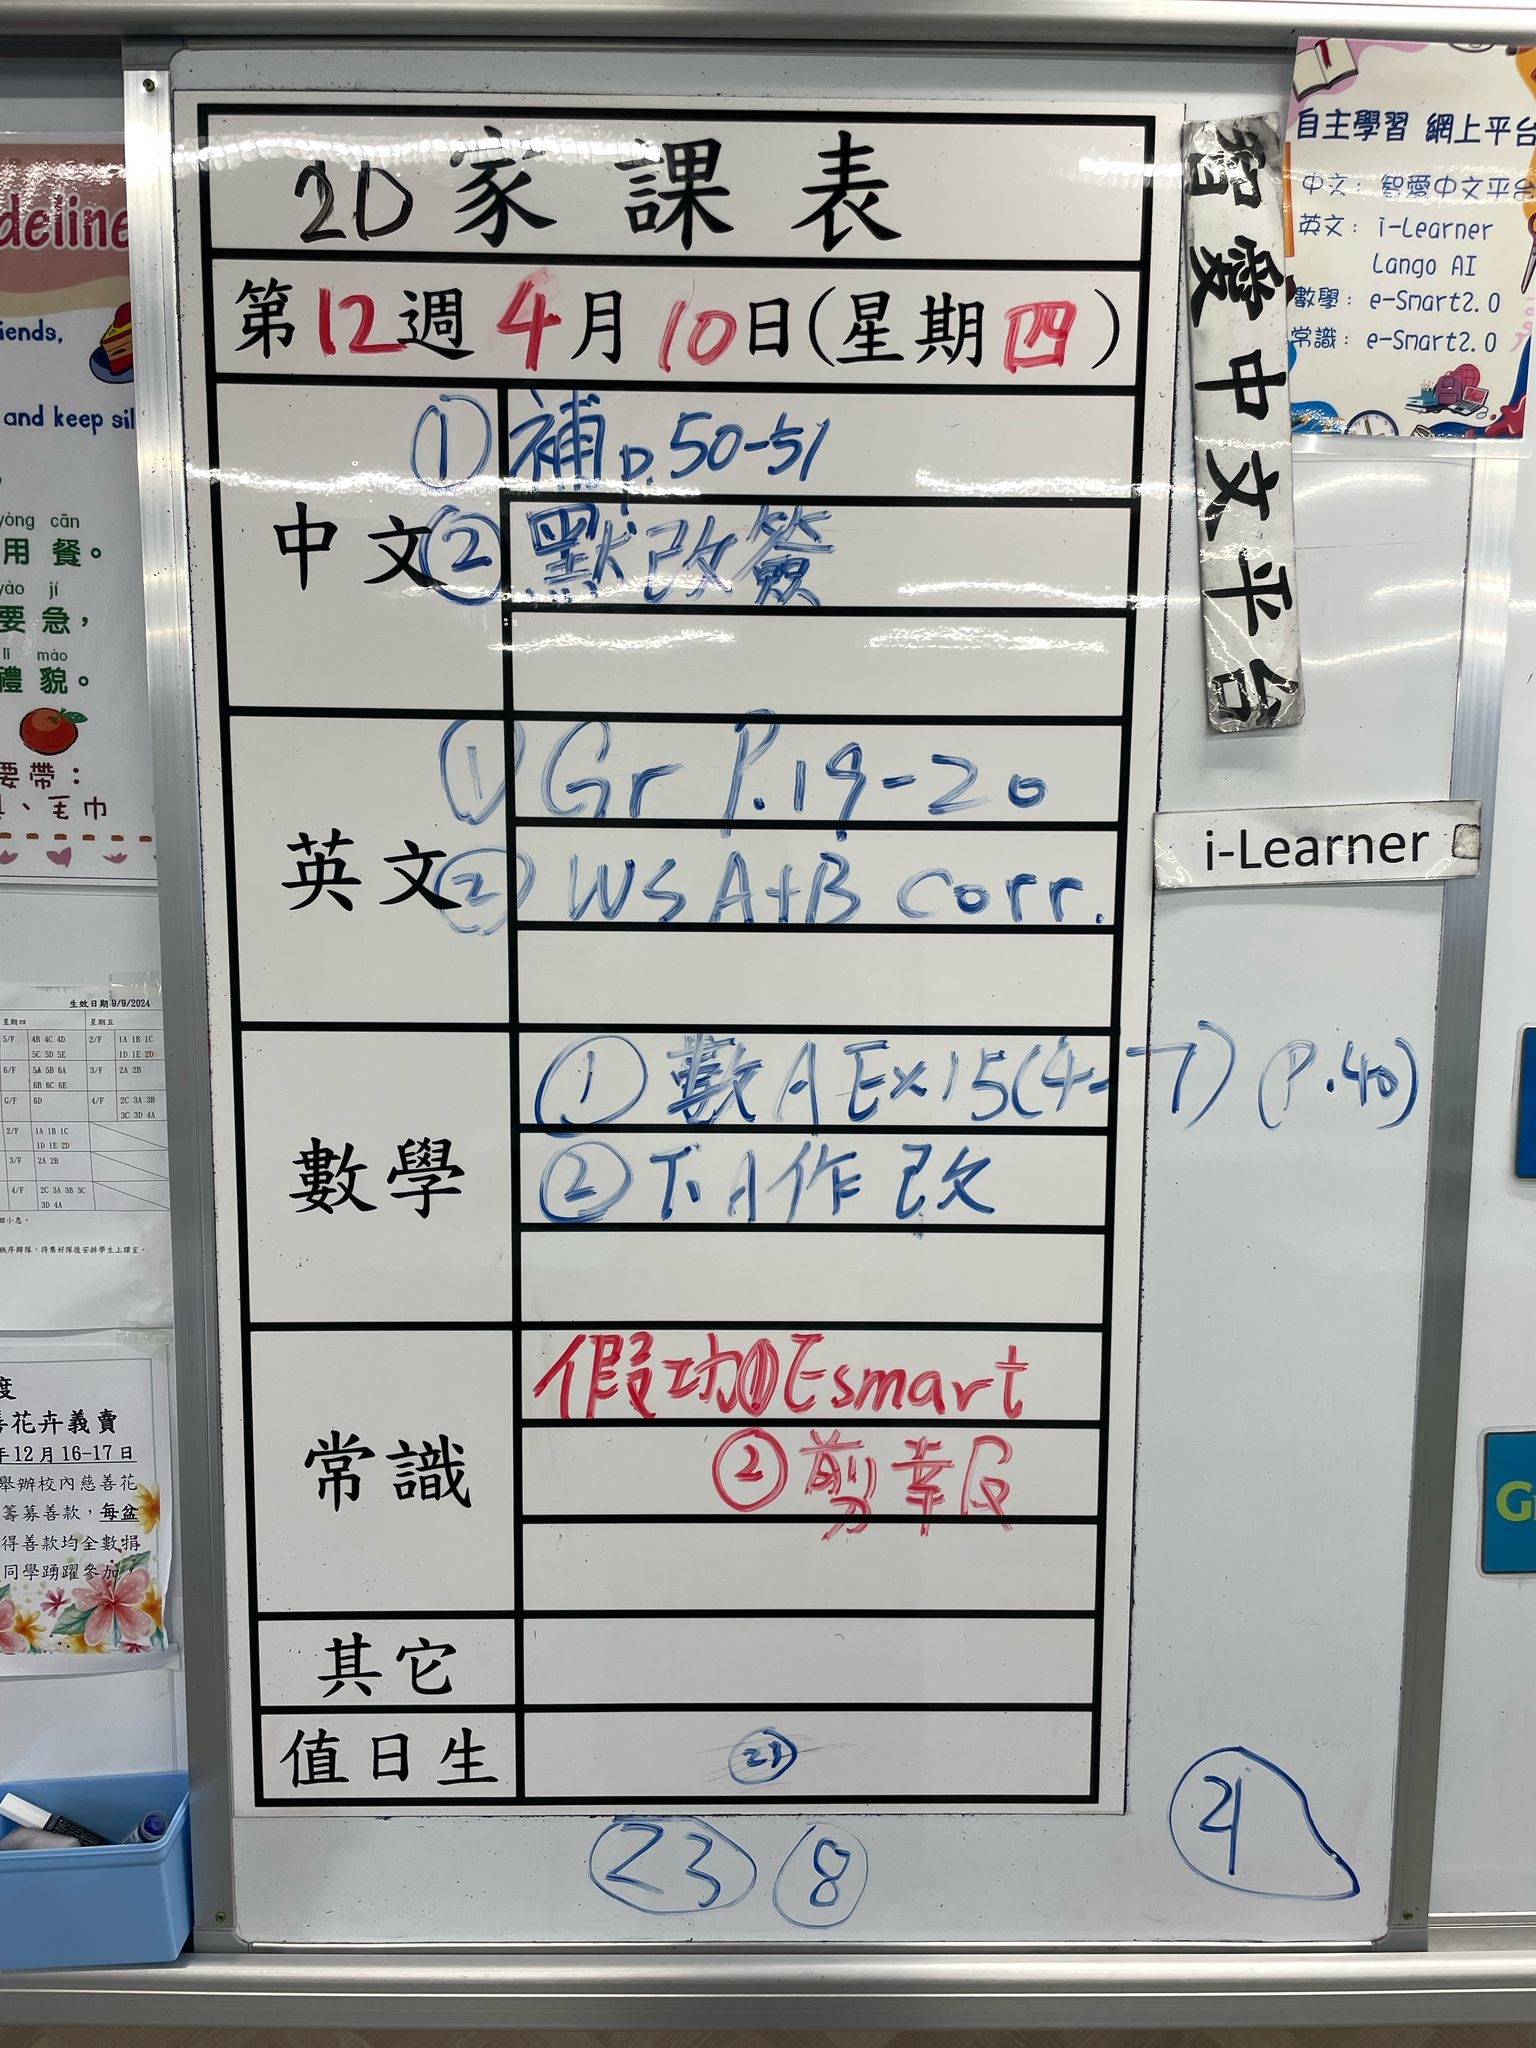 2D 家課表
第12週4月10日(星期四)
中文
① 補 p.50-51
② 默改簽
英文
① Gr P.19-20
② WS A+B corr.
數學
① 數A Ex15(4-7) (P.40)
② 下A作改
常識
假功①Esmart
② 剪幸反
其它
值日生
23
23 8
21
智愛中文平台
i-Learner
自主學習 網上平台
中文: 智愛中文平台
英文: i-Learner
Lango AI
數學: e-Smart2.0
常識: e-Smart2.0
deline
iends,
and keep sil
yòng cān
用 餐。
yào jí
要 急,
lǐ mào
禮 貌。
要帶:
、毛巾
生效日期 9/9/2024
星期四 星期五
5/F 4B 4C 4D 2/F 1A 1B 1C
5C 5D 5E 1D 1E 2D
6/F 5A 5B 6A 3/F 2A 2B
6B 6C 6E
G/F 6D 4/F 2C 3A 3B
3C 3D 4A
2/F 1A 1B 1C
1D 1E 2D
3/F 2A 2B
4/F 2C 3A 3B 3C
3D 4A
小息。
秩序歸隊,待集好隊後安排學生上課室。
度
善花卉義賣
年12月16-17日
舉辦校內慈善花
籌募善款,每盆
得善款均全數捐
同學踴躍參加,
G